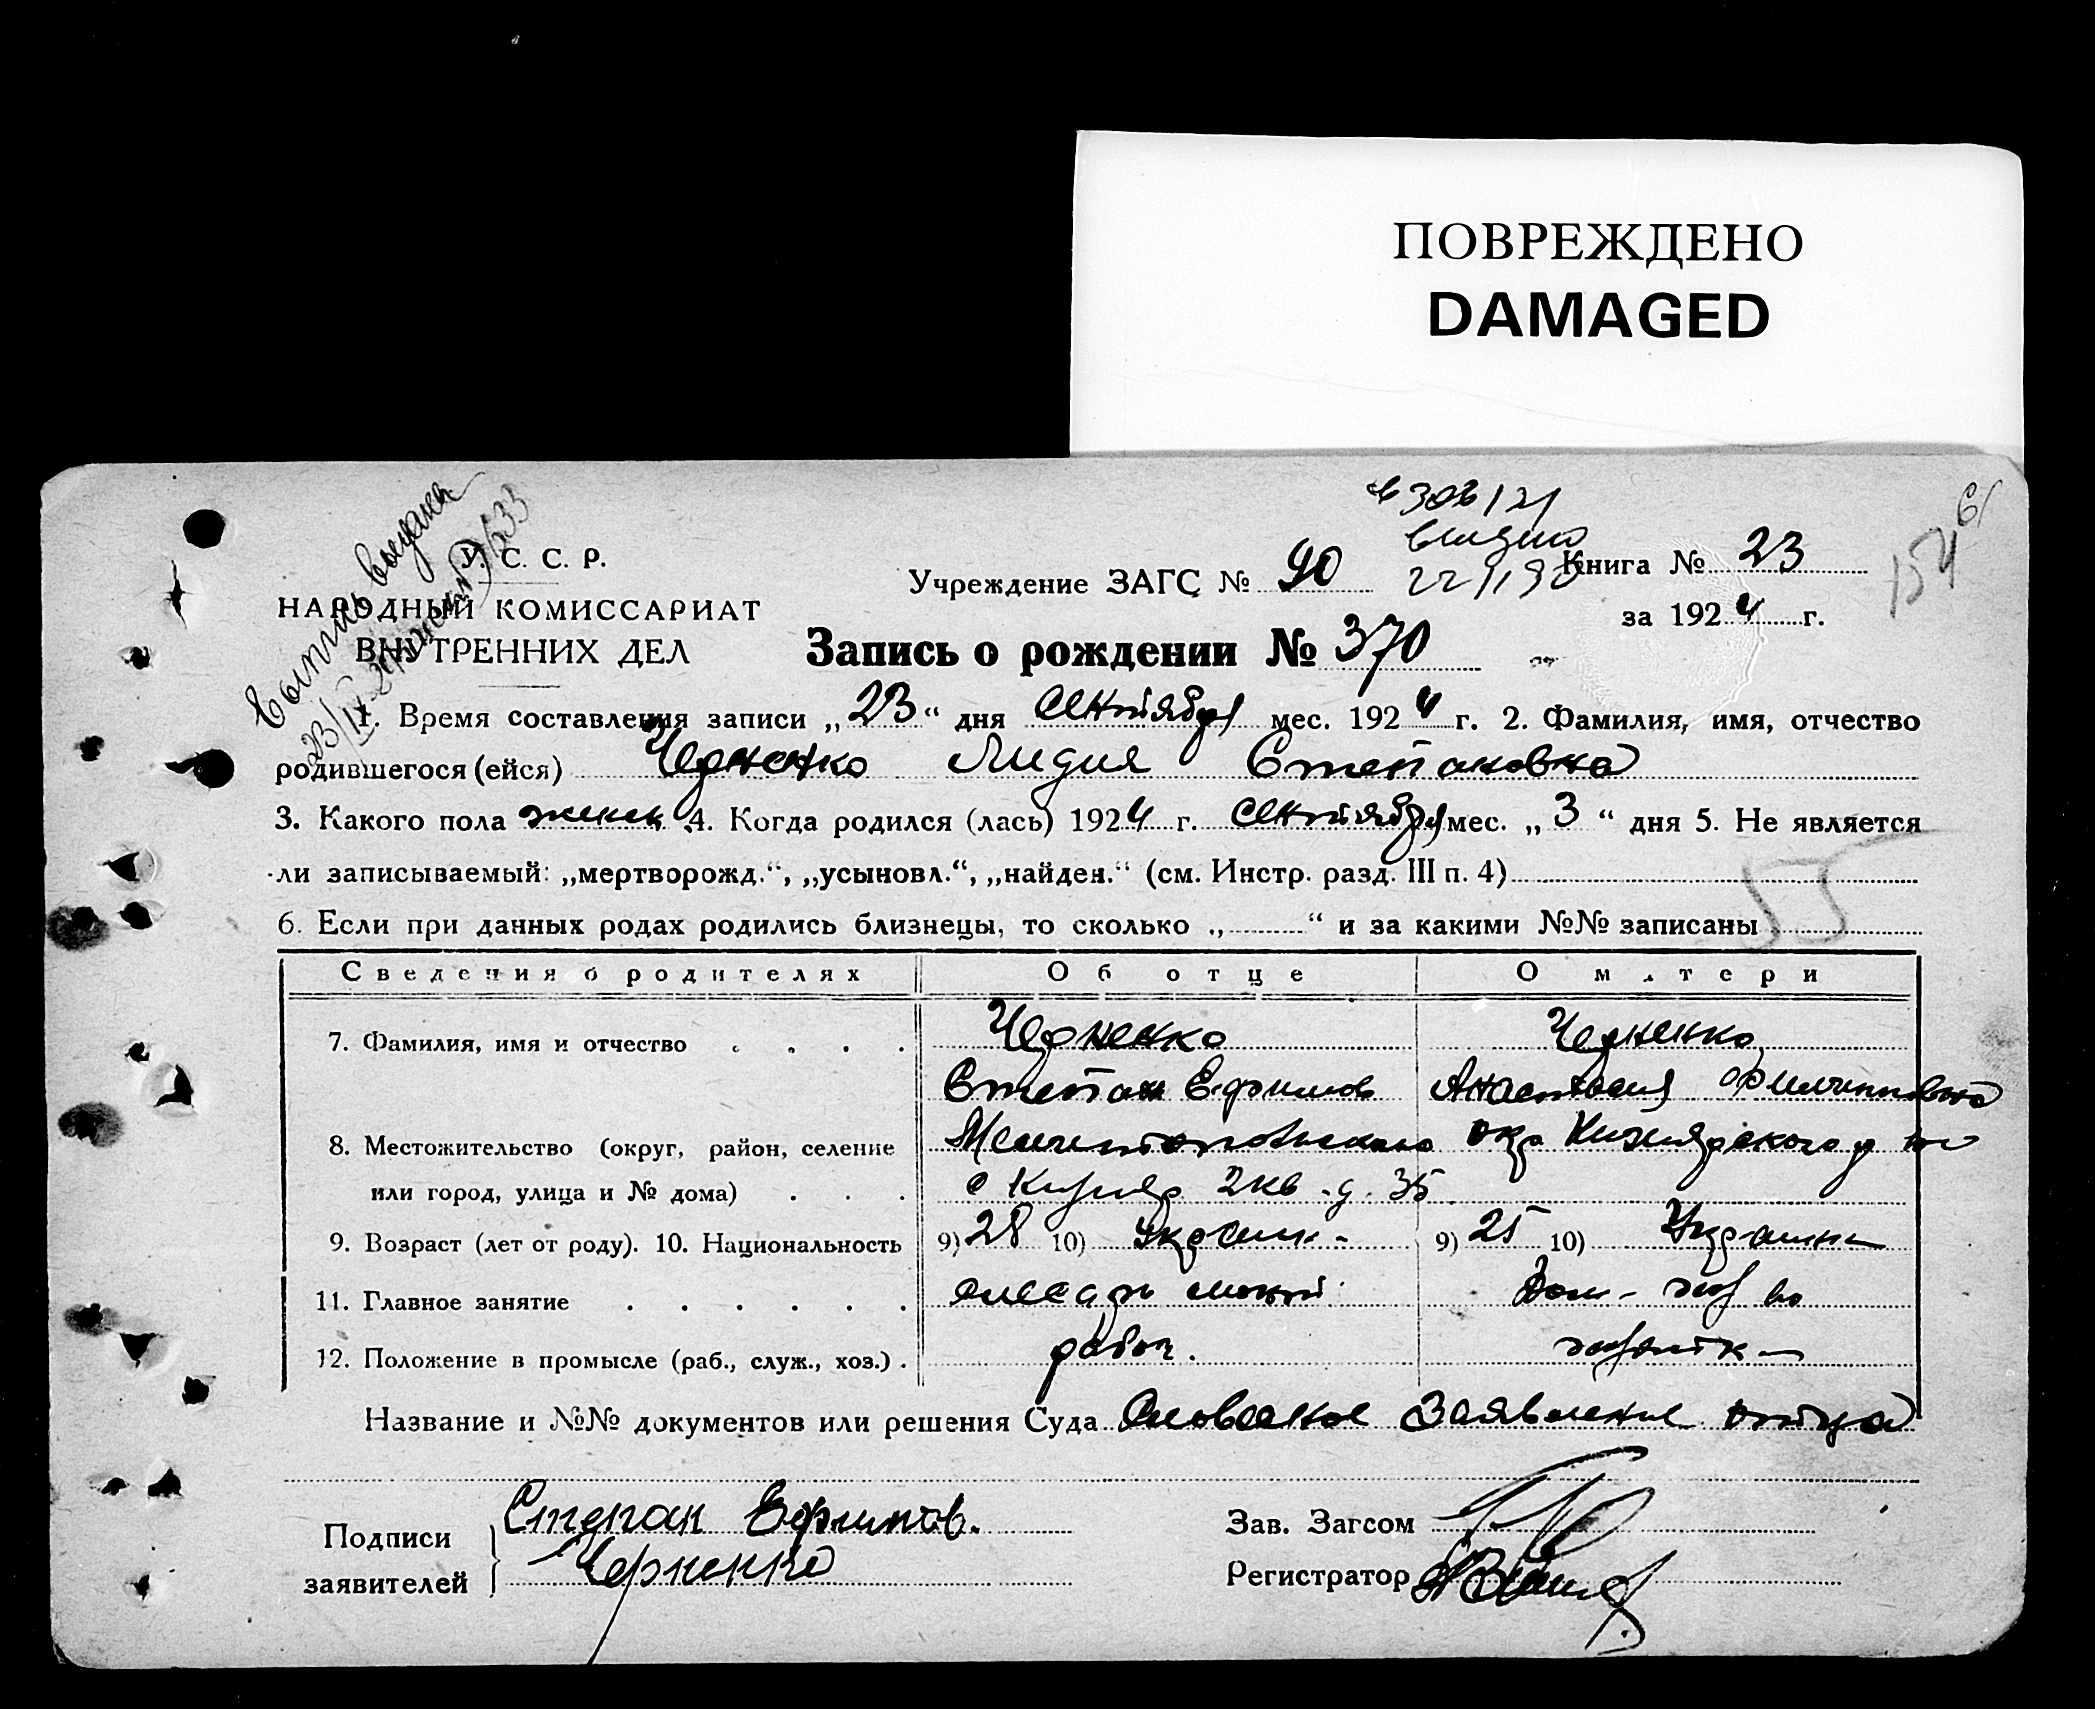 ПОВРЕЖДЕНО
DAMAGED
Выпись выдана
У. С. С. Р.
НАРОДНЫЙ КОМИССАРИАТ
ВНУТРЕННИХ ДЕЛ
Учреждение ЗАГС № 90
Книга № 23
за 1924 г.
154
Запись о рождении № 370
1. Время составления записи „23“ дня Сентября мес. 1924 г. 2. Фамилия, имя, отчество
родившегося (ейся) Черненко Лидия Степановна
3. Какого пола женск 4. Когда родился (лась) 1924 г. Сентября мес. „3“ дня 5. Не является
ли записываемый: „мертворожд.“, „усыновл.“, „найден.“ (см. Инстр. разд. III п. 4)
55
6. Если при данных родах родились близнецы, то сколько „ “ и за какими №№ записаны
Сведения о родителях Об отце О матери
7. Фамилия, имя и отчество . . . . Черненко Черненко
Степан Ефимов Анастасия Филипповна
8. Местожительство (округ, район, селение Мелитопольского окр
или город, улица и № дома) . . . 2 кв. д. 35
9. Возраст (лет от роду). 10. Национальность 9) 28 10) Украин- 9) 25 10) Украинк
11. Главное занятие . . . . . . слесарь Дом-
12. Положение в промысле (раб., служ., хоз.) . рабоч.
Название и №№ документов или решения Суда Словесное Заявление отца
Подписи заявителей
Степан Ефимов.
Черненко
Зав. Загсом
Регистратор